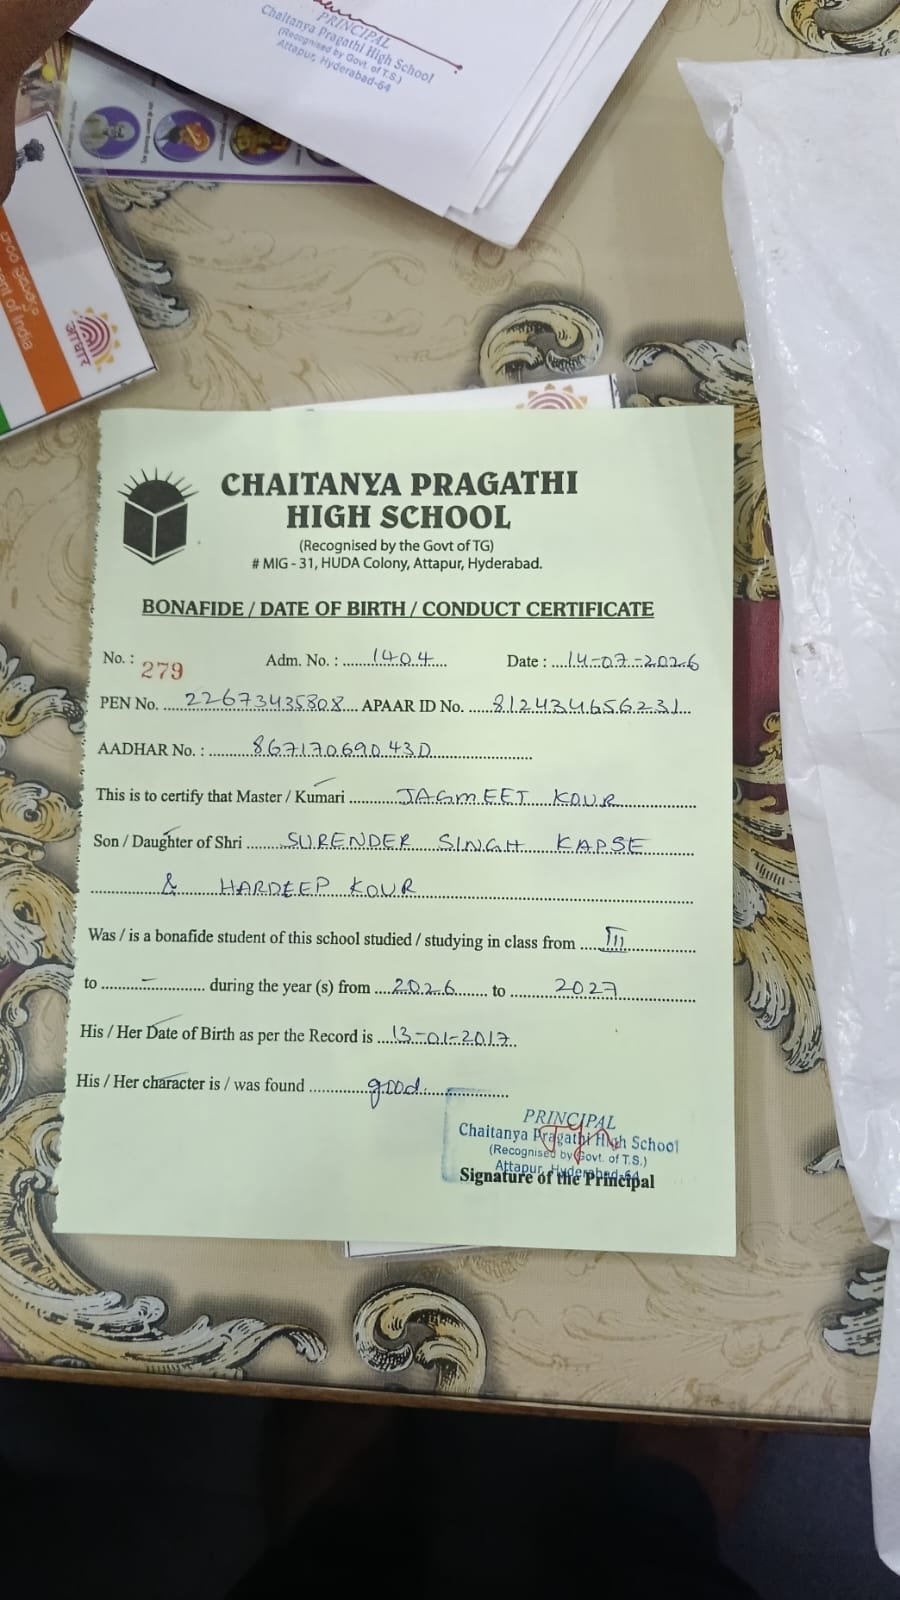 PRINCIPAL
Chaitanya Pragathi High School
(Recognised by Govt. of T.S.)
Attapur, Hyderabad-64
ent of India
आधार
CHAITANYA PRAGATHI
HIGH SCHOOL
(Recognised by the Govt of TG)
# MIG - 31, HUDA Colony, Attapur, Hyderabad.
BONAFIDE / DATE OF BIRTH / CONDUCT CERTIFICATE
No. : 279 Adm. No. : 1404 Date : 14-07-2026
PEN No. 22673435808 APAAR ID No. 812434656231
AADHAR No. : 867170690430
This is to certify that Master / Kumari JAGMEET KOUR
Son / Daughter of Shri SURENDER SINGH KAPSE
& HARDEEP KOUR
Was / is a bonafide student of this school studied / studying in class from III
to – during the year (s) from 2026 to 2027
His / Her Date of Birth as per the Record is 13-01-2017
His / Her character is / was found good
PRINCIPAL
Chaitanya Pragathi High School
(Recognised by Govt. of T.S.)
Attapur, Hyderabad-64
Signature of the Principal